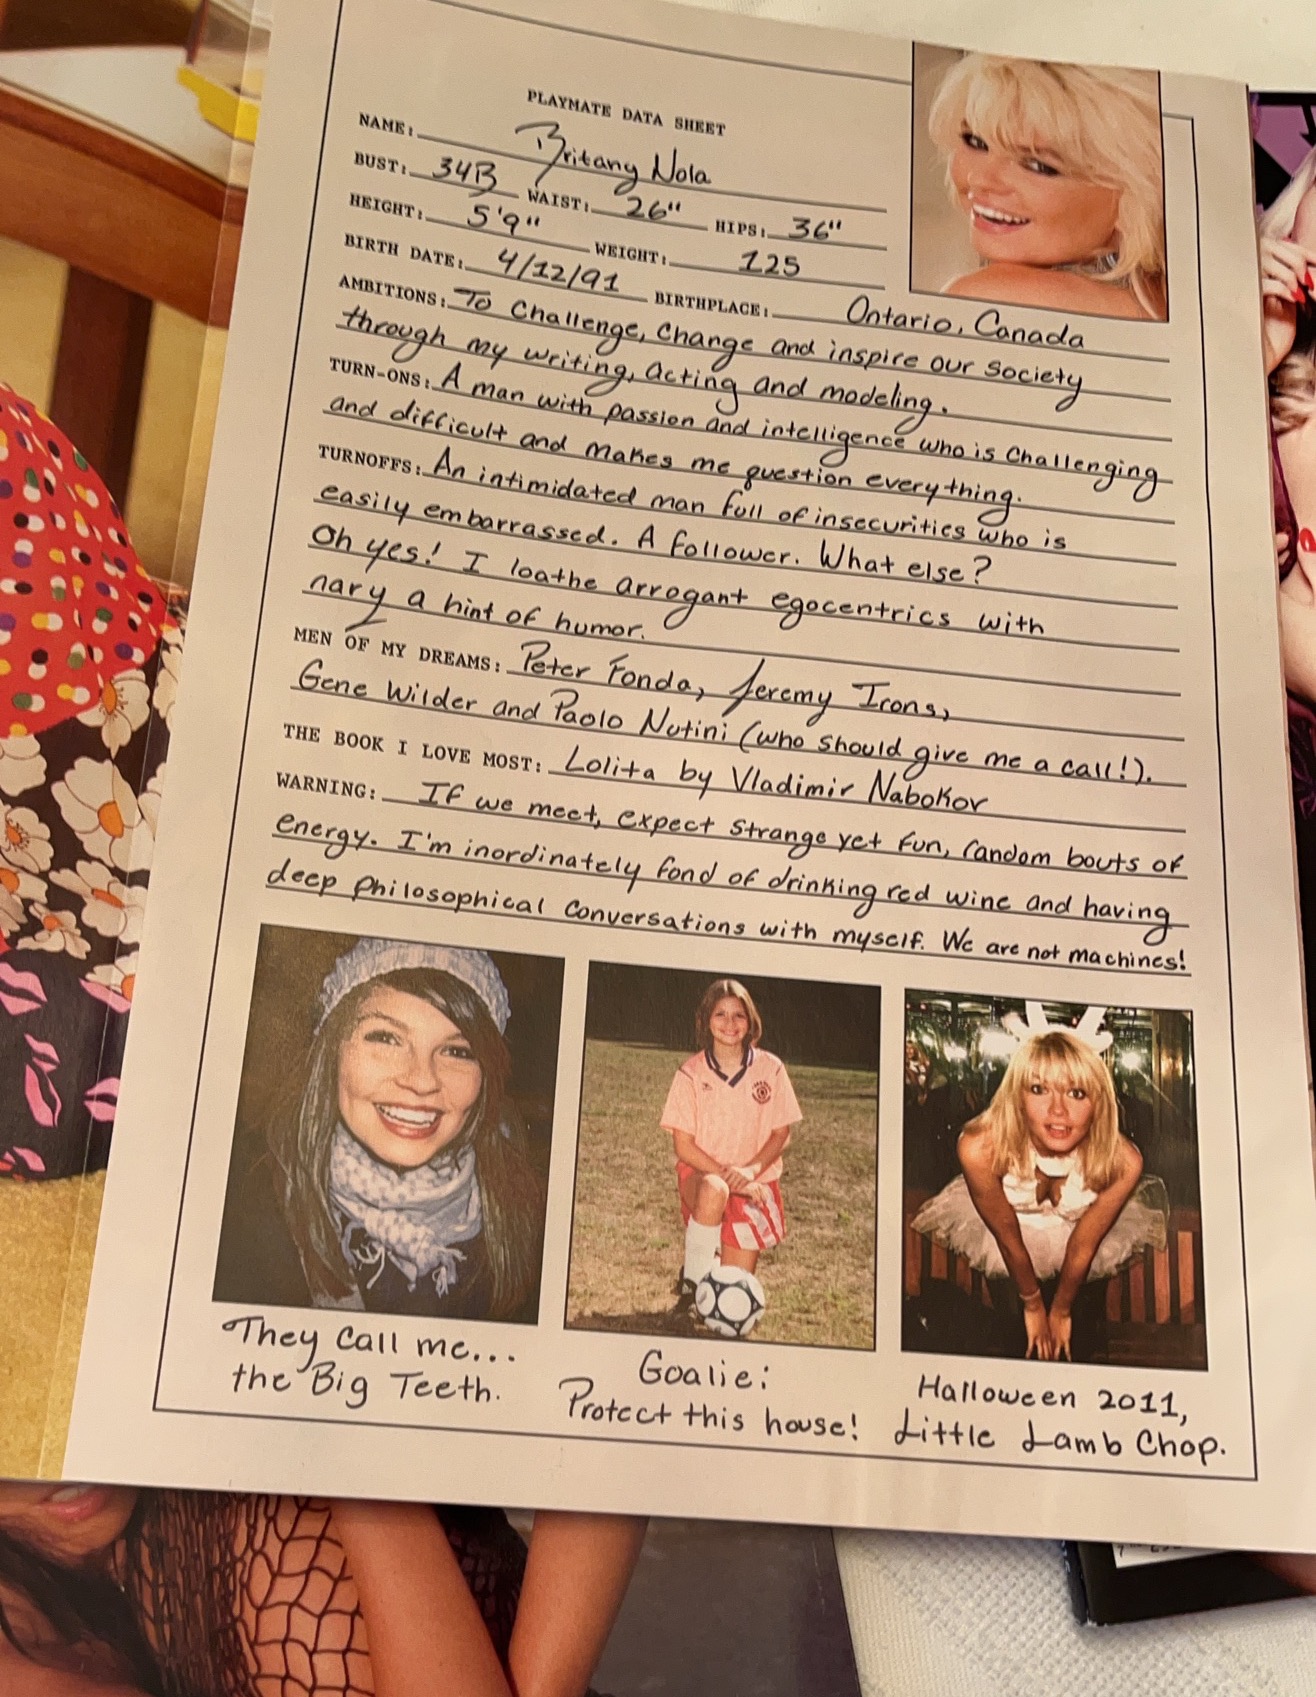 PLAYMATE DATA SHEET
NAME: Britany Nola
BUST: 34B WAIST: 26" HIPS: 36"
HEIGHT: 5'9" WEIGHT: 125
BIRTH DATE: 4/12/91 BIRTHPLACE: Ontario, Canada
AMBITIONS: To challenge, change and inspire our society
through my writing, acting and modeling.
TURN-ONS: A man with passion and intelligence who is challenging
and difficult and makes me question everything.
TURNOFFS: An intimidated man full of insecurities who is
easily embarrassed. A follower. What else?
Oh yes! I loathe arrogant egocentrics with
nary a hint of humor.
MEN OF MY DREAMS: Peter Fonda, Jeremy Irons,
Gene Wilder and Paolo Nutini (who should give me a call!).
THE BOOK I LOVE MOST: Lolita by Vladimir Nabokov
WARNING: If we meet, expect strange yet fun, random bouts of
energy. I'm inordinately fond of drinking red wine and having
deep philosophical conversations with myself. We are not machines!
They call me...
the Big Teeth.
Goalie:
Protect this house!
Halloween 2011,
Little Lamb Chop.